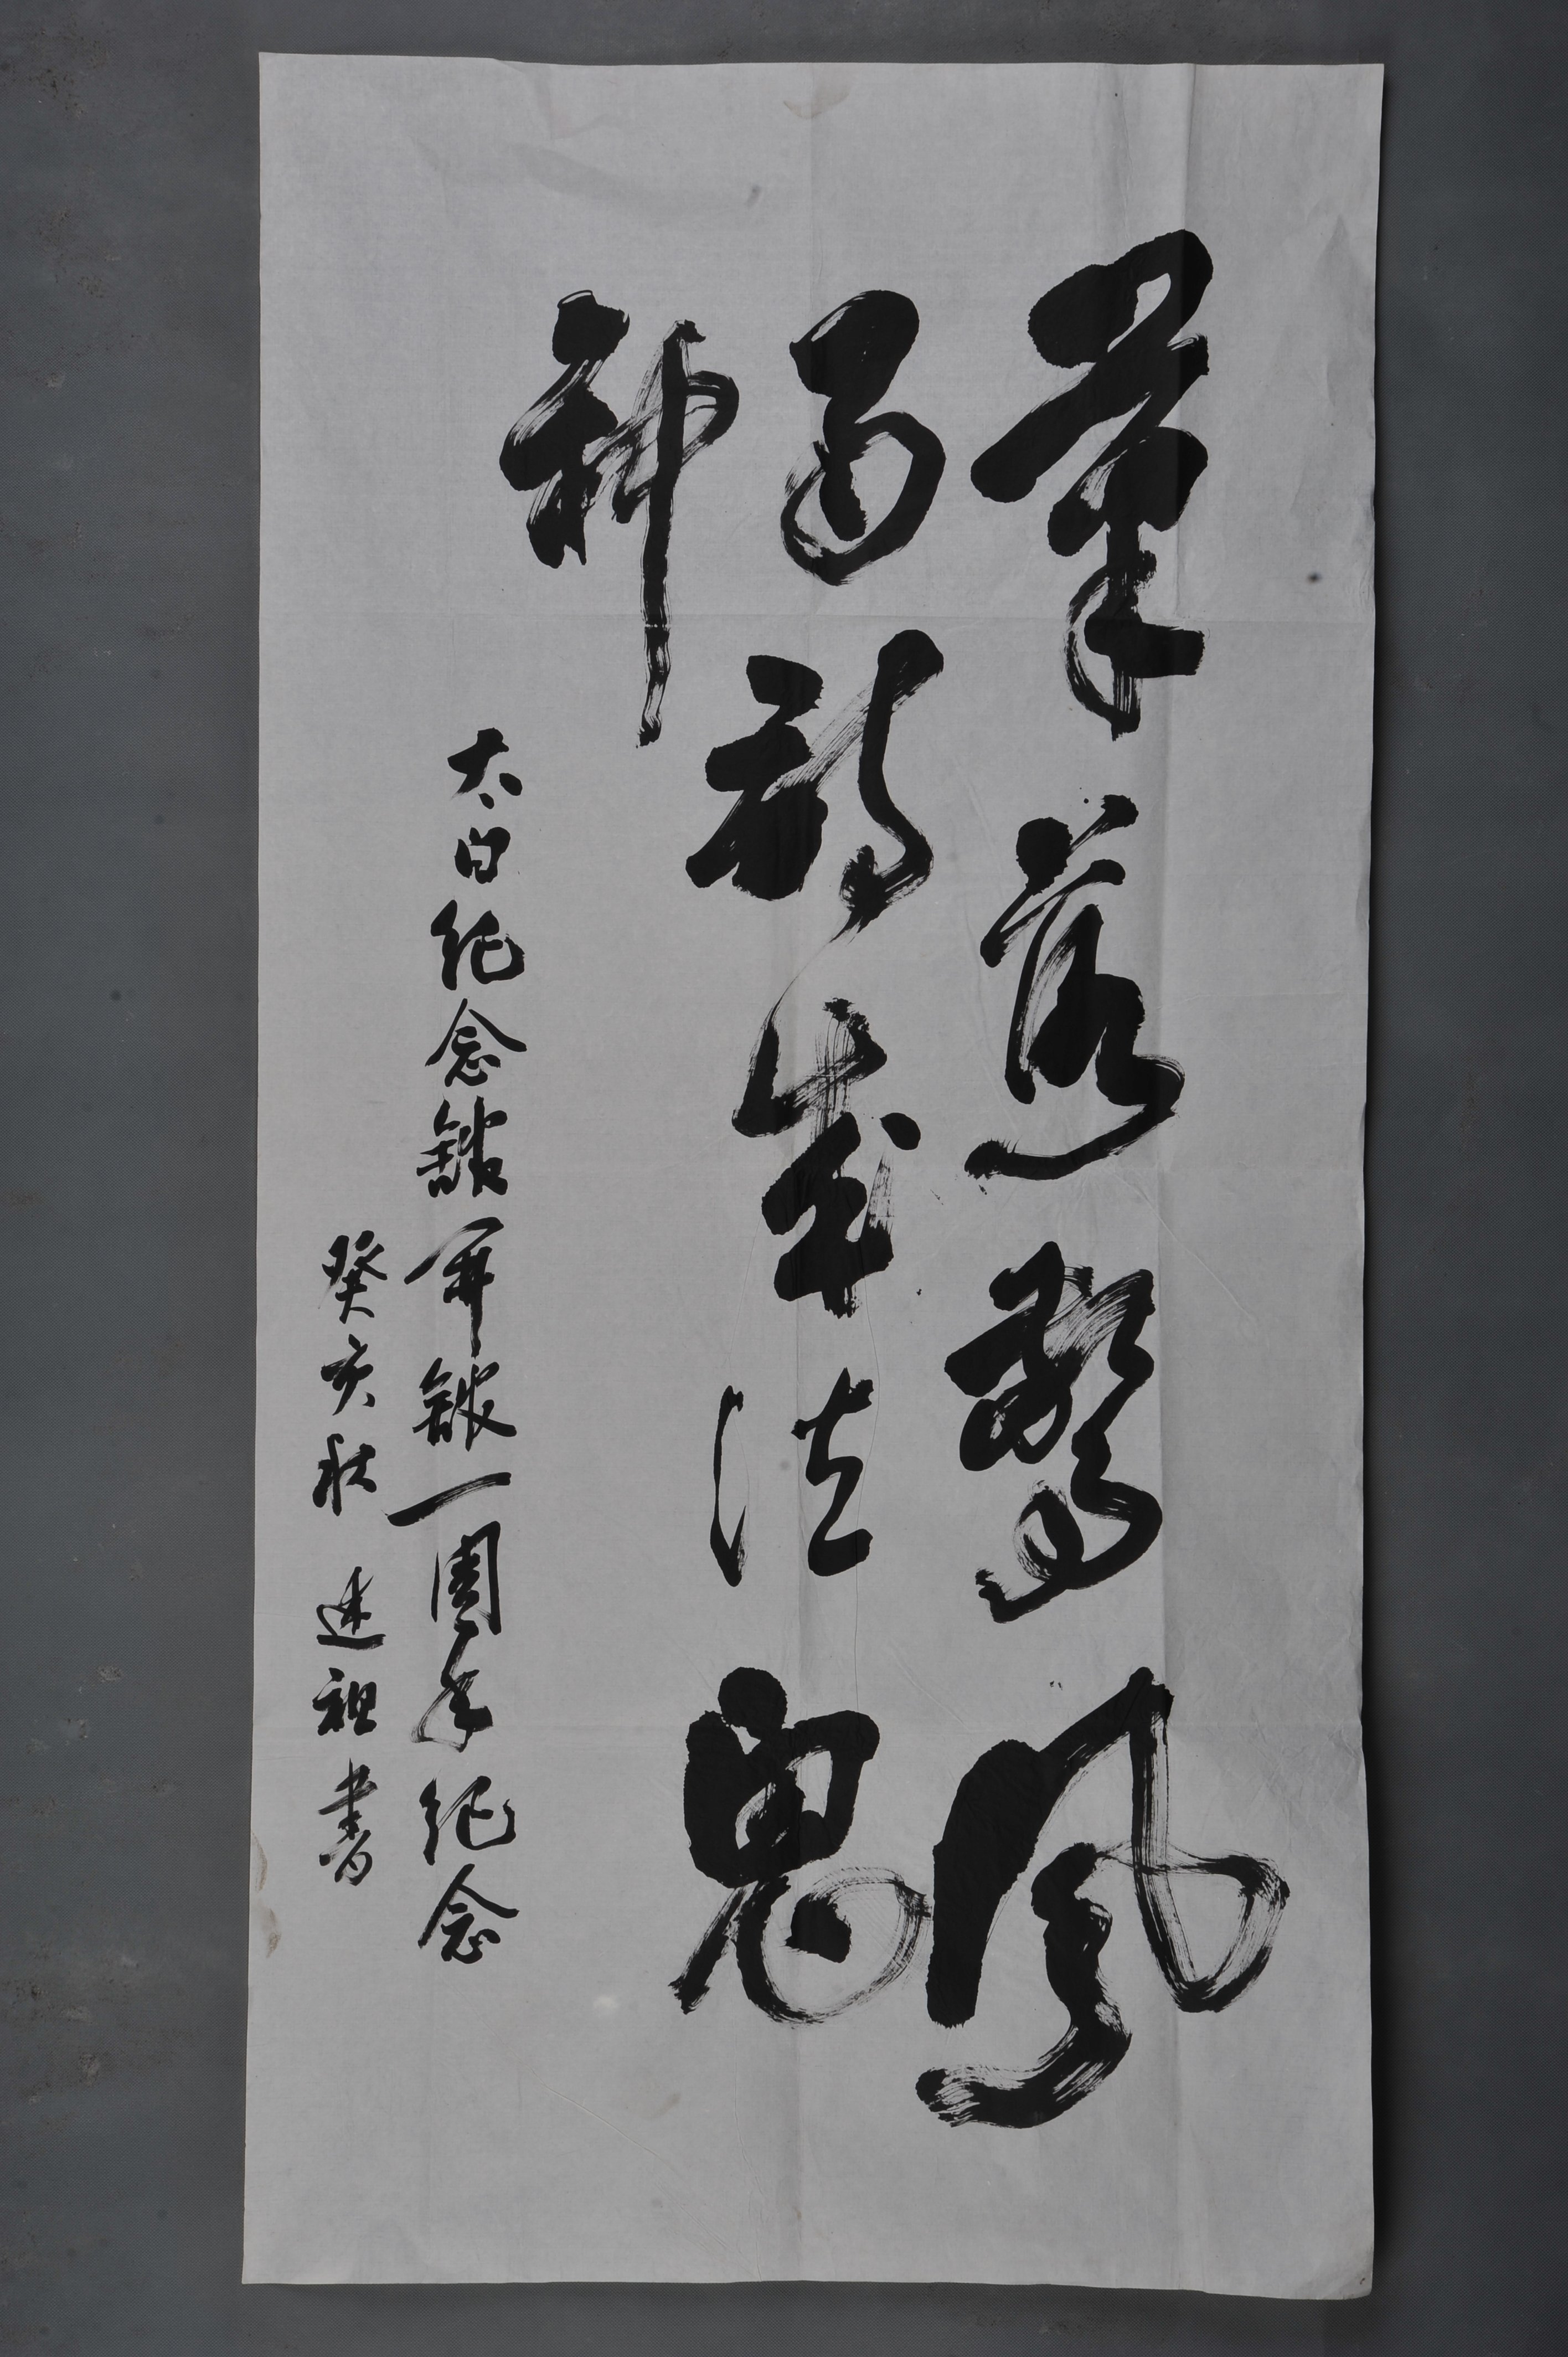 筆落驚風
雨詩成泣鬼
神
太白紀念舘開舘一周年紀念
癸亥秋 述祖書